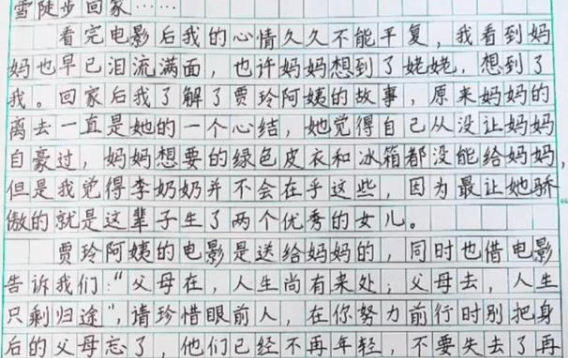 雪陡步回家……
看完电影后我的心情久久不能平复，我看到妈
妈也早已泪流满面，也许妈妈想到了姥姥，想到了
我。回家后我了解了贾玲阿姨的故事，原来妈妈的
离去一直是她的一个心结，她觉得自己从没让妈妈
自豪过，妈妈想要的绿色皮衣和冰箱都没能给妈妈，
但是我觉得李奶奶并不会在乎这些，因为最让她骄
傲的就是这辈子生了两个优秀的女儿。
贾玲阿姨的电影是送给妈妈的，同时也借电影
告诉我们：“父母在，人生尚有来处；父母去，人生
只剩归途”，请珍惜眼前人，在你努力前行时别把身
后的父母忘了，他们已经不再年轻，不要失去了再